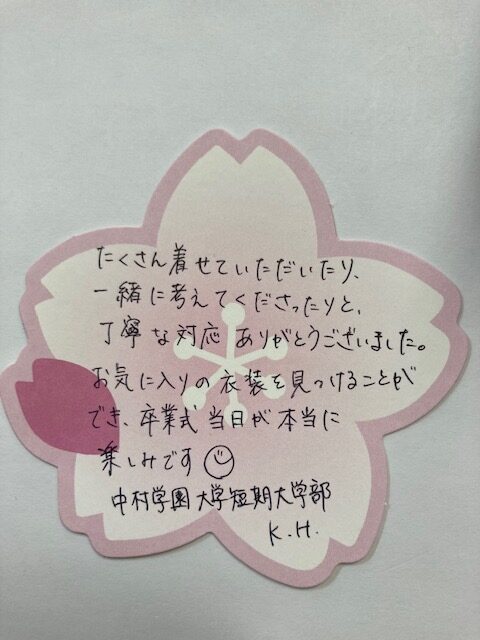 たくさん着せていただいたり、
一緒に考えてくださったりと、
丁寧な対応ありがとうございました。
お気に入りの衣装を見つけることが
でき、卒業式当日が本当に
楽しみです☺
中村学園大学短期大学部
K.H.